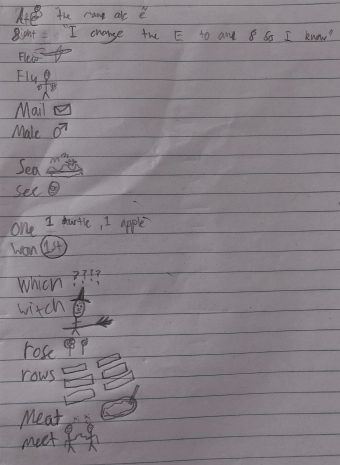 Ate the name
8ght = "I change the E to and 8 so I know"
Flew
Fly
Mail
Male
Sea
see
One 1 turtle, 1 apple
Won 1st
Which ????
witch
rose
rows
Meat
meet